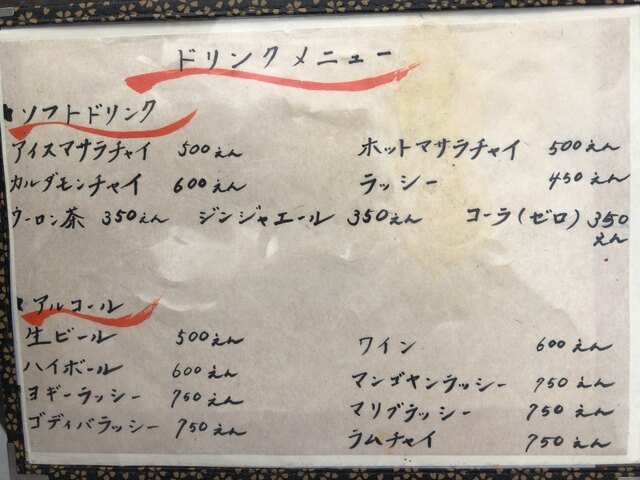 ドリンクメニュー
ソフトドリンク
アイスマサラチャイ 500えん ホットマサラチャイ 500えん
カルダモンチャイ 600えん ラッシー 450えん
ウーロン茶 350えん ジンジャエール 350えん コーラ(ゼロ) 350えん
アルコール
生ビール 500えん ワイン 600えん
ハイボール 600えん マンゴヤンラッシー 750えん
ヨギーラッシー 750えん マリブラッシー 750えん
ゴディバラッシー 750えん ラムチャイ 750えん